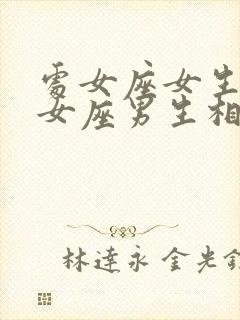 處女座女生
女座男生相
林達永 金光